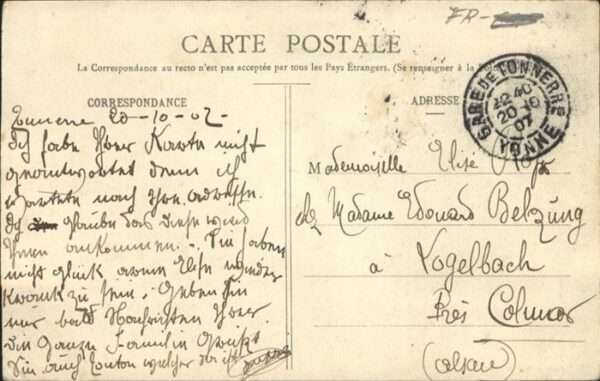 FR-
CARTE POSTALE
La Correspondance au recto n'est pas acceptée par tous les Pays Étrangers. (Se renseigner à la
CORRESPONDANCE
ADRESSE
GARE DE TONNERRE
12 40
20 10
07
YONNE
Tonnerre 20-10-07
Ich habe Ihrer Karte nicht
geantwortet denn ich
wartete nach Ihre Adresse.
Ich glaube das diese wird
Ihnen ankommen. Sie haben
nicht glück arme Elise wieder
krank zu sein, geben Sie
mir bald Nachrichten Ihrer
die ganze Familie
Sie auch welcher
Mademoiselle Elise
chez Madame Edouard Belzung
à Vogelbach
Près Colmar
(Alsace)